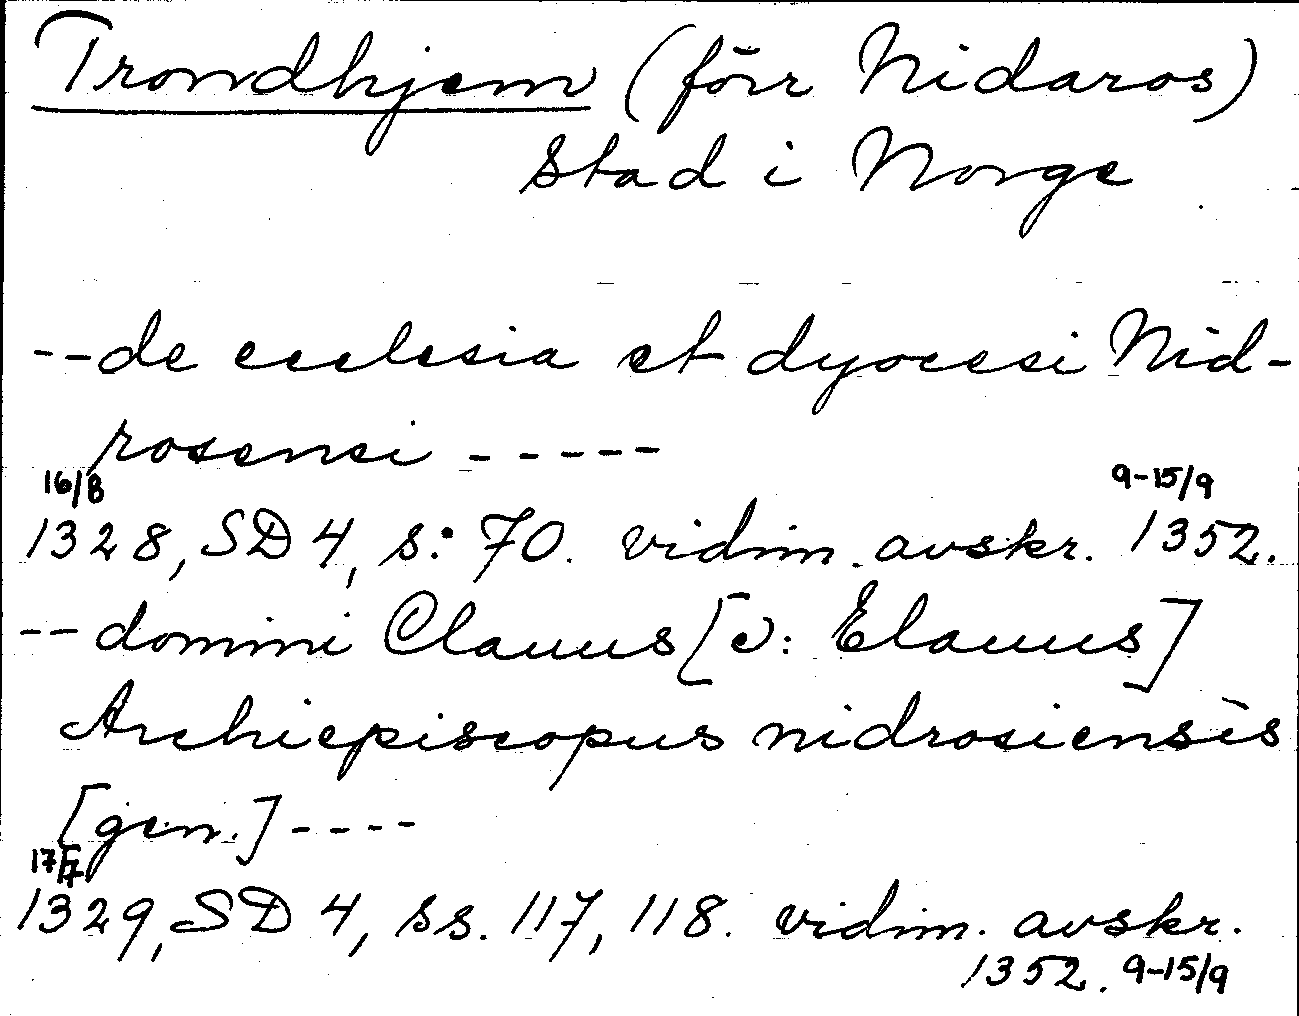 Trondhjem (förr Nidaros)
Stad i Norge
--de ecclesia et dyocesi Nid-
rosensi -----
16/8 9-15/9
1328, SD 4, s: 70. vidim. avskr. 1352.
--domini Clauus [ɔ: Elauus]
Archiepiscopus nidrosiensis
[gen.]----
17/7
1329, SD 4, ss. 117, 118. vidim. avskr.
1352. 9-15/9